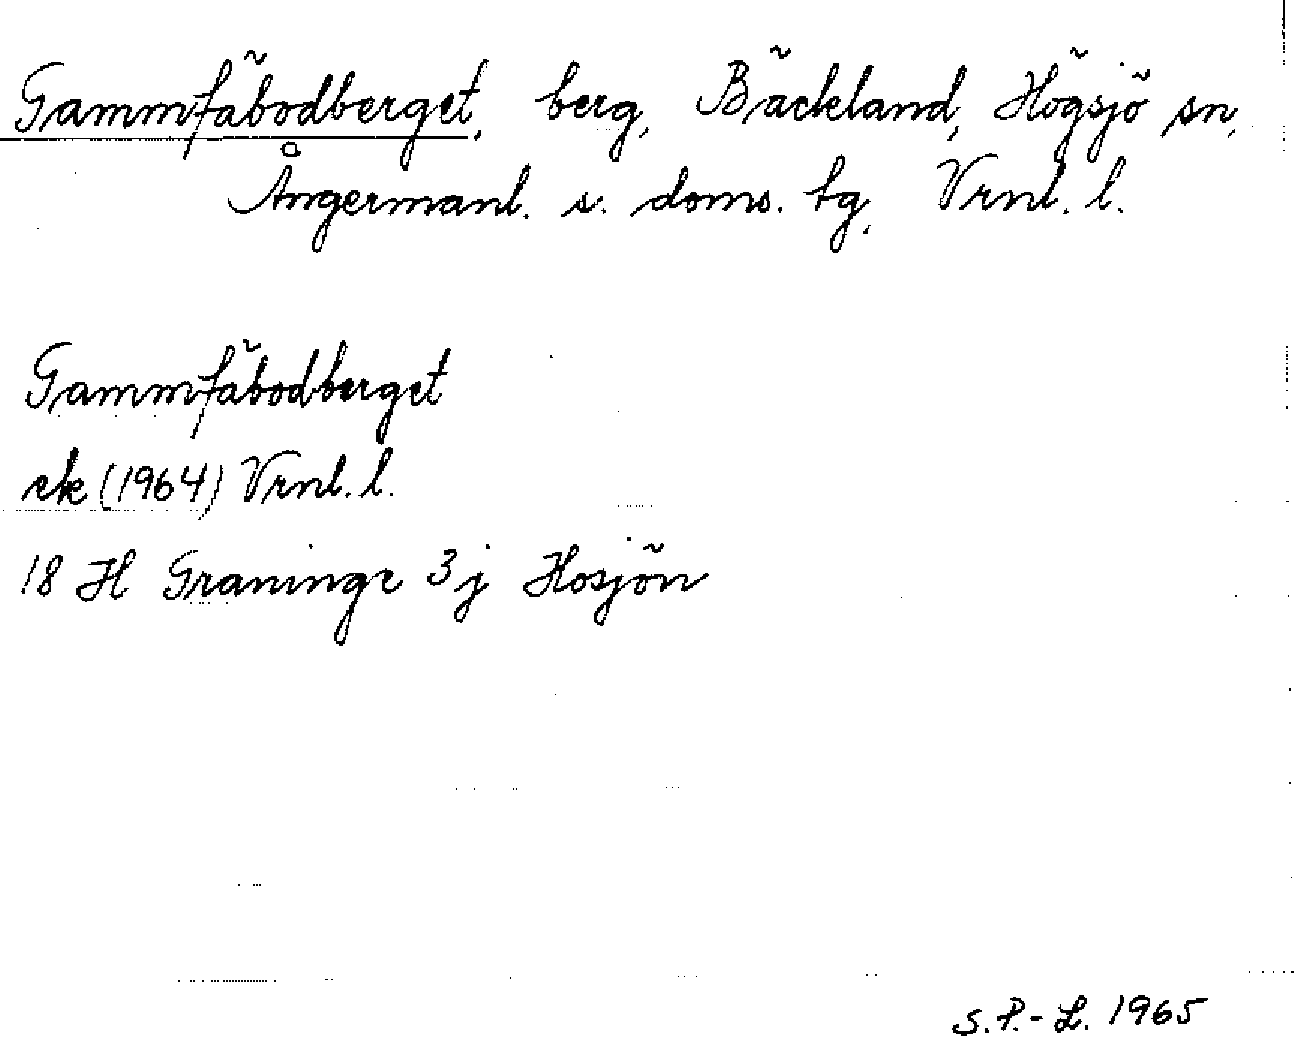 Gammfäbodberget, berg, Bäckland, Högsjö sn,
Ångermanl. s. doms. tg, Vrnl. l.
Gammfäbodberget
ek (1964) Vrnl. l.
18 H Graninge 3 j Hosjön
S.P.-L. 1965